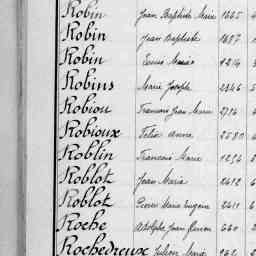 Robin Jean Baptiste Marie 1665
Robin Jean Baptiste 1687
Robin Marie 1214
Robins Marie Joseph 2246
Robiou Francois Jean Marie 2716
Robioux Felix Anne 2580
Roblin Francois Marie 1254
Roblot Jean Marie 2412 6
Roblot Pierre Marie Eugene 2411 6
Roche Adolphe Jean 660
Rochedreux Julien Marie 962